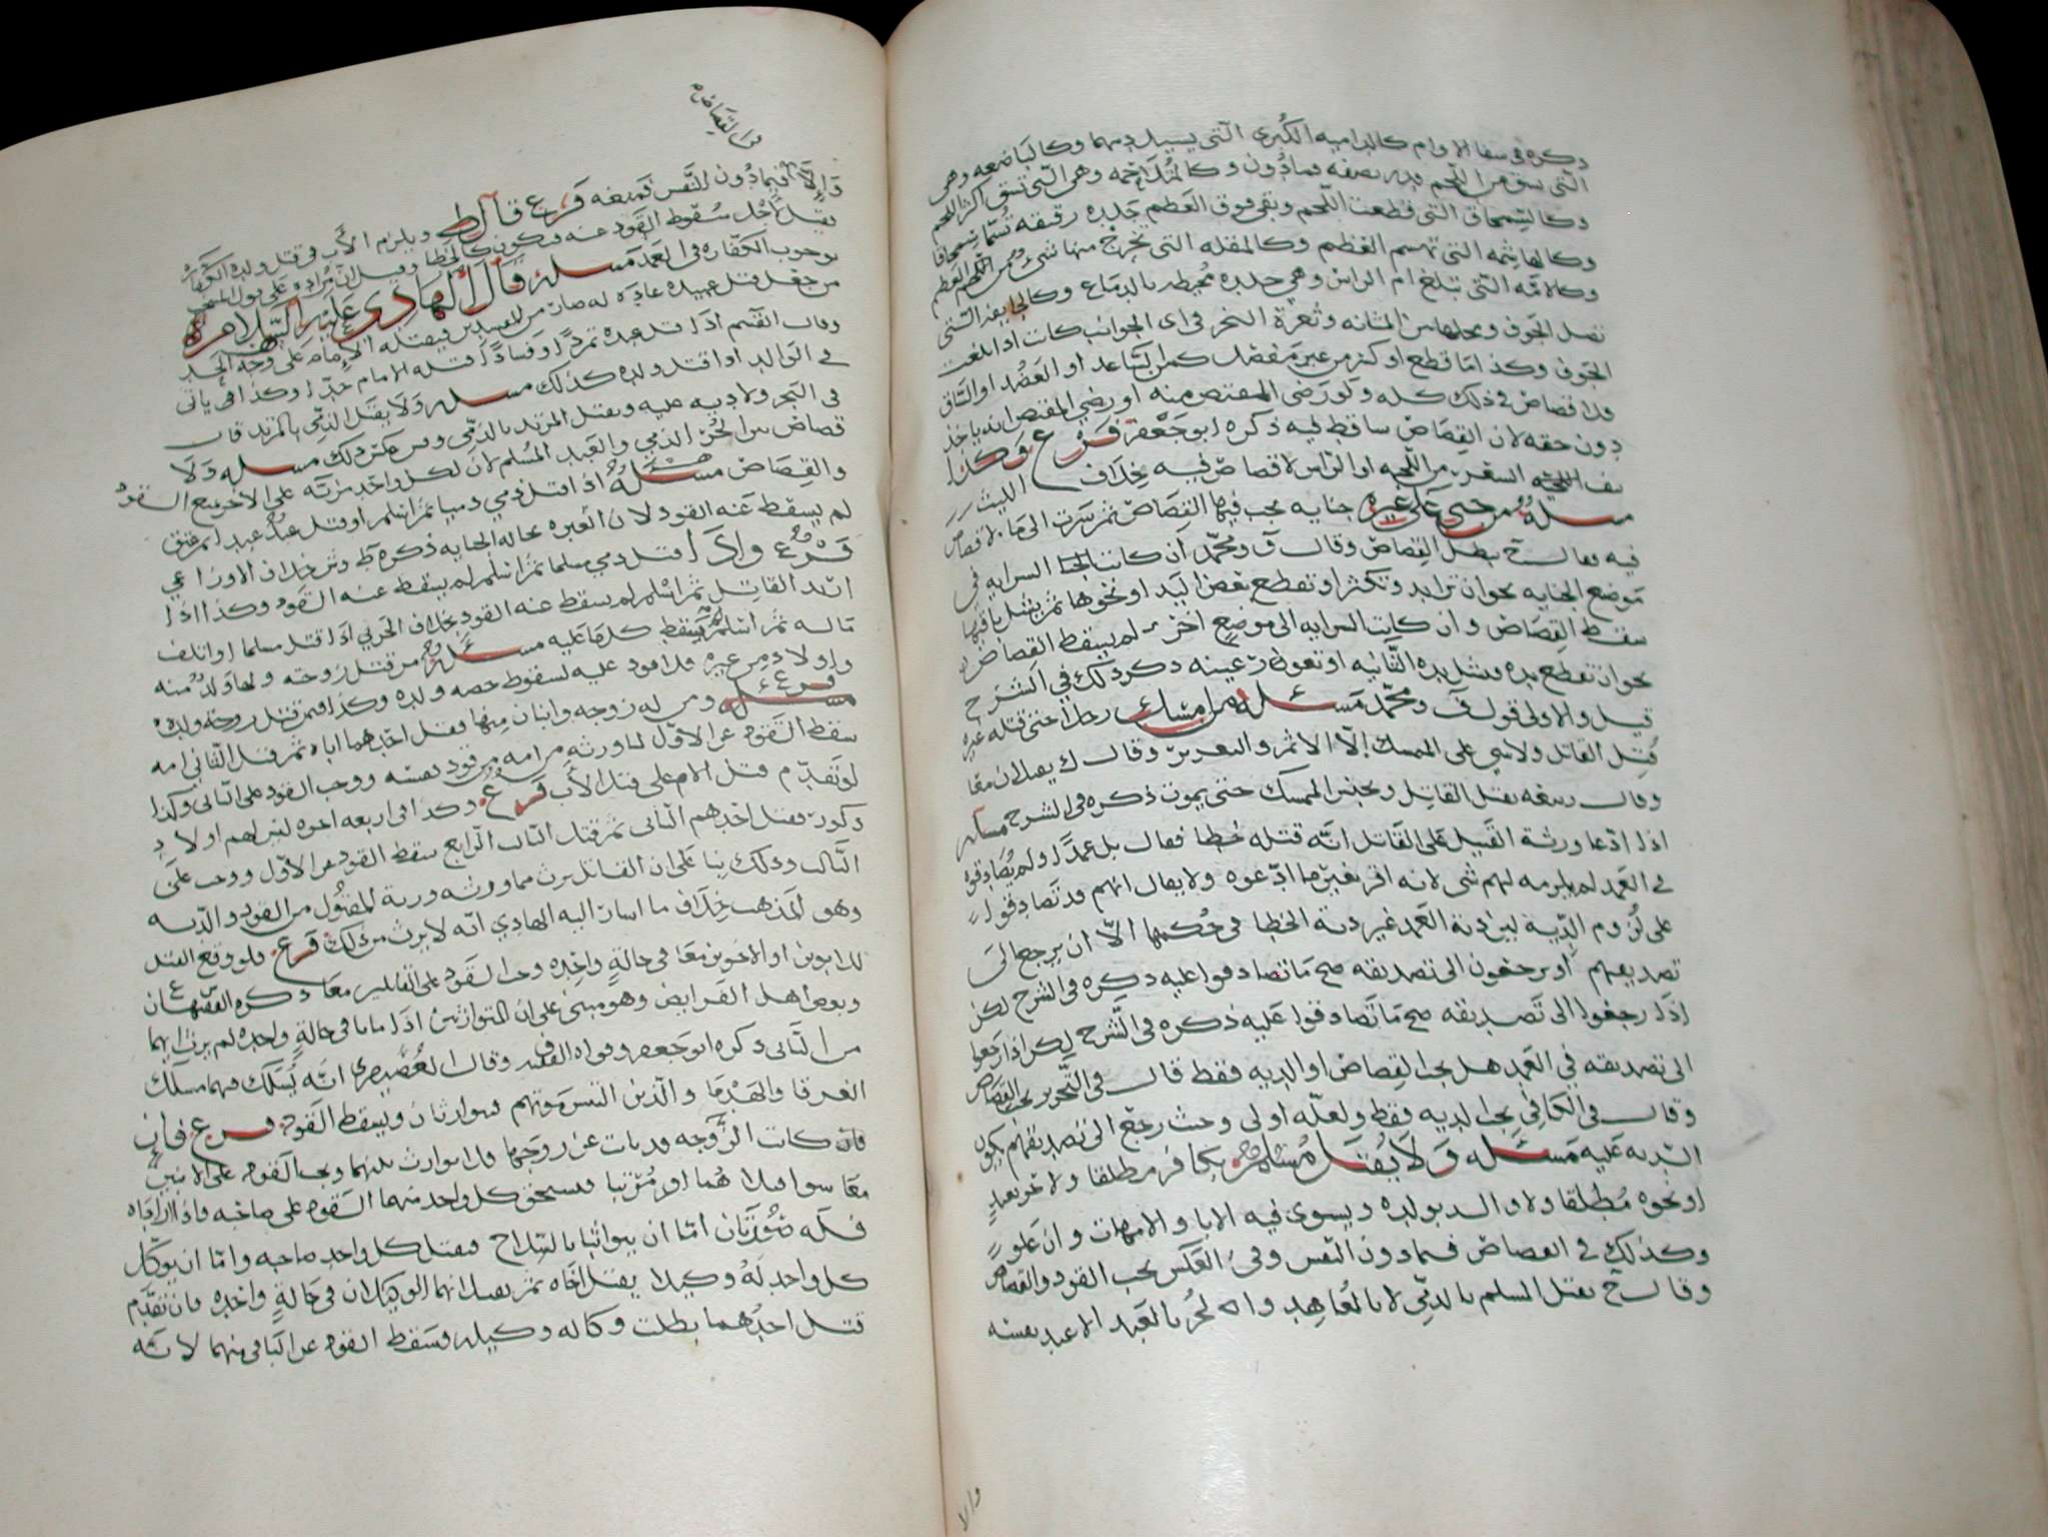 ذكره في شفا الاوام كالداميه الكبرى التي يسيل دمها وكالباضعه وهي
التي تشق من اللحم قدر نصفه فمادون وكالمتلاحمه وهي التي تشق اكثر اللحم
وكالسمحاق التي قطعت اللحم وبقى فوق العظم جلده رقيقه تسما سمحاقا
وكالهاشمه التي تهشم العظم وكالمنقله التي تخرج منها شي من العظم
وكالامه التي تبلغ ام الراس وهي جلده محيطه بالدماغ وكالجايفه التي
تصل الجوف ومحلها من المثانه وثغرة النحر في اي الجوانب كانت اذا بلغت
الجوف وكذا ما قطع او كسر من غير مفصل كمن الساعد او العضد او الساق
فلا قصاص في ذلك كله ولو رضى المقتص منه او رضي المقتص انه ياخذ
دون حقه لان القصاص ساقط فيه ذكره ابو جعفر فرع وكذا
نتف الشعر من اللحيه او الراس لا قصاص فيه خلاف الليث
مسله من جنى على غيره جنايه يجب فيها القصاص ثم سرت الى ما لا قصاص
فيه فقال ح يبطل القصاص وقال ف ومحمد ان كانت السرايه في
موضع الجنايه نحو ان تزايد وتكثر او تقطع بعض اليد او نحوها ثم يشل باقيها
سقط القصاص وان كانت السرايه الى موضع اخر لم يسقط القصاص
نحو ان تقطع يده فتشل يده الثانيه او تعور عينه ذكر ذلك في الشرح
قيل والاولى قول ف ومحمد مسئله من امسك رجلا حتى قتله غيره
قتل القاتل ولا شي على الممسك الا الاثم والتعزير وقال ك يقتلان معا
وقال ربيعه يقتل القاتل ويحبس الممسك حتى يموت ذكره في الشرح مسله
اذا ادعا ورثة القتيل على القاتل انه قتله خطا فقال بل عمدا ولم يصادقوه
في العمد لم يلزمه لهم شي لانه اقر بغير ما ادعوه ولا يقال انهم قد تصادقوا
على لزوم الدية لين دية العمد غير دية الخطا في حكمها الا ان يرجع الى
تصديقهم او يرجعون الى تصديقه صح ما تصادقوا عليه ذكره في الشرح لكن
اذا رجعوا الى تصديقه صح ما تصادقوا عليه ذكره في الشرح لكن اذا رجعوا
الى تصديقه في العمد هل يجب القصاص او الديه فقط قال في التحرير يجب القصاص
وقال في الكافي يجب الديه فقط ولعله اولى وحيث رجع الى تصديقهم يكون
الديه عليه مسئله ولا يقتل مسلم بكافر مطلقا ولا حر بعبد
او نحوه مطلقا ولا والد بولده ويستوي فيه الابا والامهات وان علوا
وكذلك في القصاص فيمادون النفس وفي العكس يجب القود والقصاص
وقال ح يقتل المسلم بالذمي لا بالمعاهد والحر بالعبد الا عبد نفسه
والا
والا فيمادون النفس فمنعه فرع قال ط ويلزم الاب في قتل ولده الكفارة
لاجل سقوط القود عنه فيكون كالخطا وقيل انه على قول
بوجوب الكفاره في العمد مسله قال الهادي عليه السلام من
من جعل قتل عبيده عاده له صار من المفسدين فيقتله الامام على وجه الحد
وقال القسم اذا قتل عبده تمردا وفسادا قتله الامام حدا وكذا ياتي
في الوالد اذا قتل ولده كذلك مسله ولا يقتل الذمي بالمرتد قال
في البحر ولا ديه عليه ويقتل المرتد بالذمي ومن عكس ذلك مسله ولا
قصاص بين الحر الذمي والعبد المسلم لان لكل واحد مزيه على الاخر تمنع القود
والقصاص مسئله اذا قتل ذمي ذميا ثم اسلم او قتل عبد عبدا ثم عتق
لم يسقط عنه القود لان العبره بحاله الجنايه ذكره ط وش خلاف الاوزاعي
فرع واذا قتل ذمي مسلما ثم اسلم لم يسقط عنه القود وكذا اذا
ارتد القاتل ثم اسلم لم يسقط عنه القود بخلاف الحربي اذا قتل مسلما او اتلف
ماله ثم اسلم فيسقط كل ما عليه مسئله من قتل زوجته ولها ولد منه
واولاد من غيره فلا قود عليه لسقوط حصه ولده وكذا فيمن قتل زوجة ولده
فرع مسئله ومن له زوجه وابنان منها فقتل احدهما اباه ثم قتل الثاني امه
سقط القود عن الاول لما ورثه من امه من قود نفسه ووجب القود على الثاني وكذا
لو تقدم قتل الام على قتل الاب فرع وكذا في اربعه اخوه ليس لهم اولاد
ذكور فقتل احدهم الثاني ثم قتل الثالث الرابع سقط القود عن الاول ووجب على
الثالث وذلك بنا على ان القاتل يرث مما ورثه ورثة المقتول من القود والديه
وهو المذهب خلاف ما اشار اليه الهادي انه لا يرث من ذلك فرع فلو وقع القتل
للابوين او الاخوين معا في حالة واحده وجب القود على القاتلين معا ذكره الفقيهان
وبعض اهل الفرايض وهو مبني على ان المتوارثين اذا ماتا في حالة واحده لم يرث ايهما
من الثاني ذكره ابو جعفر وقواه الفقيه وقال العصيفري انه يسلك فيهما مسلك
الغرقا والهدما والذين التبس موتهم فيتوارثان ويسقط القود فرع فان
فان كانت الزوجه قد بانت عن زوجها فلا توارث بينهما ويجب القود على الابنين
معا سوا قتلا هما او مرتبا فيستحق كل واحد منهما القود على صاحبه فاذا اراداه
فله صورتان اما ان يتواثبا بالسلاح فيقتل كل واحد صاحبه واما ان يوكل
كل واحد له وكيلا يقتل اخاه ثم يقتلانهما الوكيلان في حالة واحده فان تقدم
قتل احدهما بطلت وكاله وكيله فسقط القود عن الباقي منهما لانه